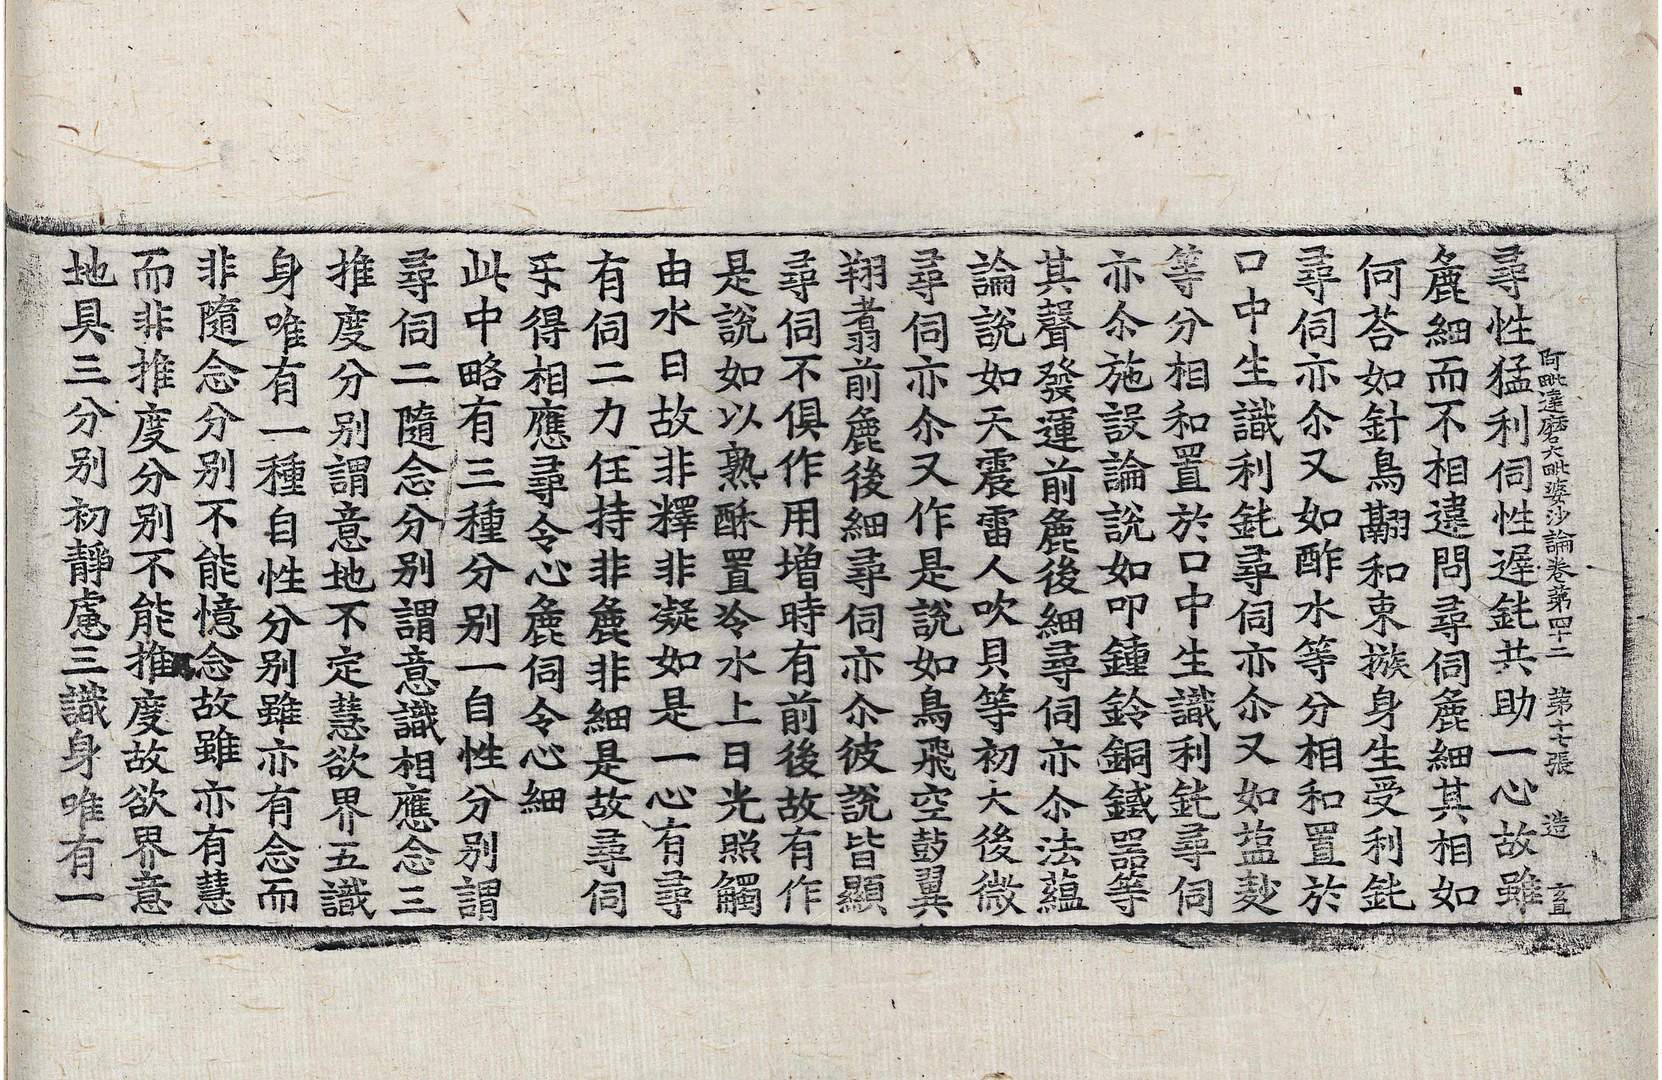 阿毗達磨大毗婆沙論卷第四十二　第十七張　造　
尋性猛利伺性遲鈍共助一心故雖
麁細而不相違問尋伺麁細其相如
何荅如針鳥翮和束搣身生受利鈍
尋伺亦尒又如酢水等分相和置於
口中生識利鈍尋伺亦尒又如塩麨
等分相和置於口中生識利鈍尋伺
亦尒施設論說如叩鍾鈴銅鐵器等
其聲發運前麁後細尋伺亦尒法蘊
論說如天震雷人吹貝等初大後微
尋伺亦尒又作是說如鳥飛空鼓翼
翔翥前麁後細尋伺亦尒彼說皆顯
尋伺不俱作用增時有前後故有作
是說如以熟酥置冷水上日光照觸
由水日故非釋非凝如是一心有尋
有伺二力任持非麁非細是故尋伺
乎得相應尋令心麁伺令心細
此中略有三種分別一自性分別謂
尋伺二隨念分別謂意識相應念三
推度分別謂意地不定慧欲界五識
身唯有一種自性分別雖亦有念而
非隨念分別不能憶念故雖亦有慧
而非推度分別不能推度故欲界意
地具三分別初靜慮三識身唯有一